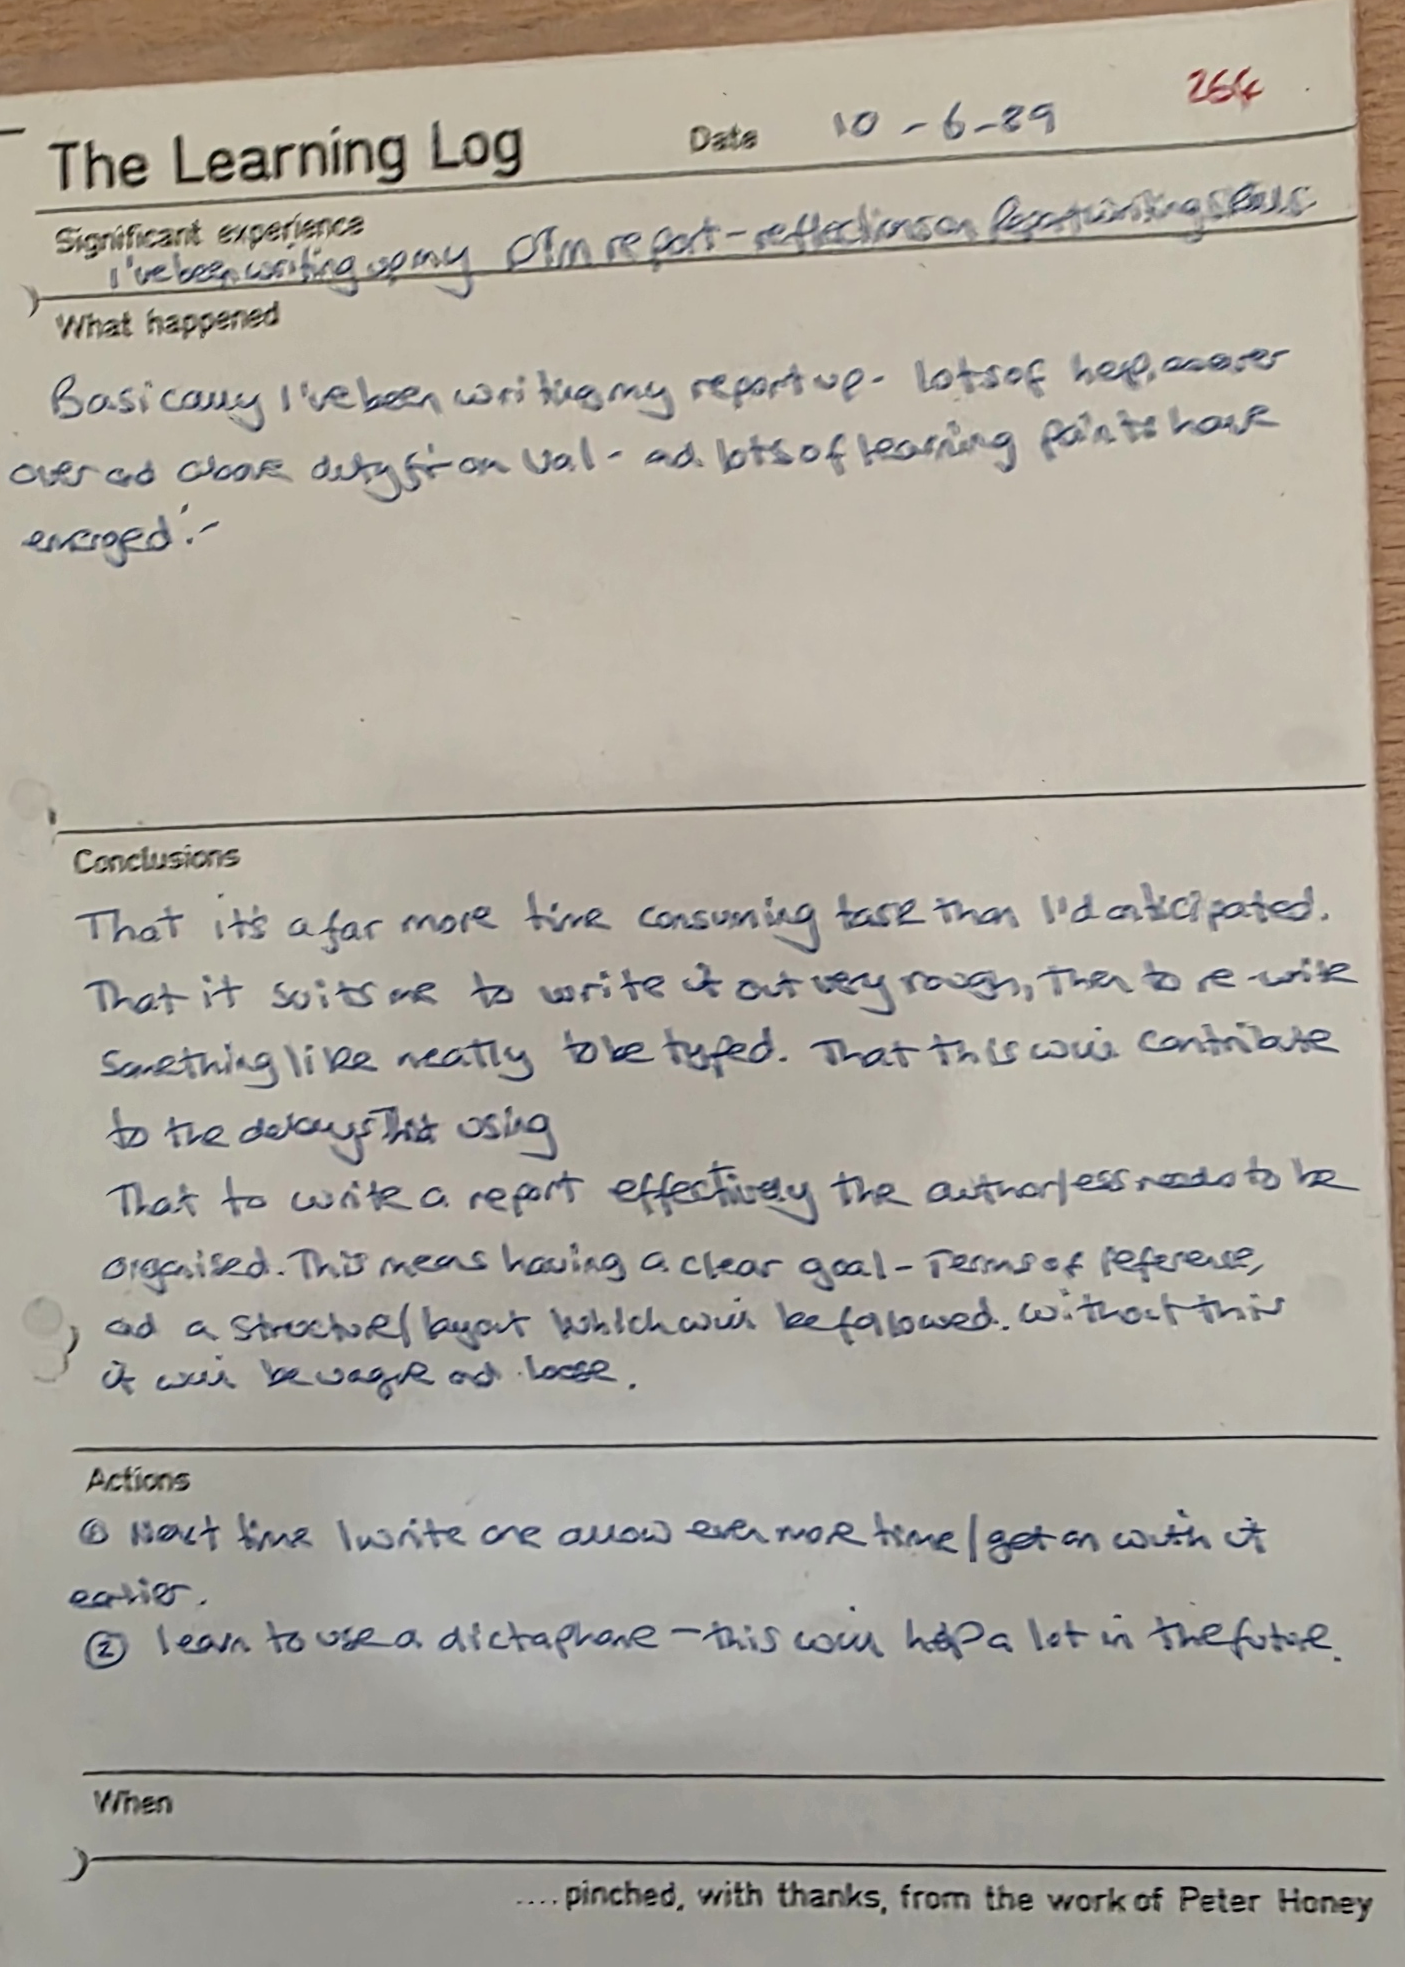 264
The Learning Log Date 10-6-89
Significant experience
I've been writing up my DTM report - reflections on Report writing skills
What happened
Basically I've been writing my report up - lots of help,
over ad above duty from Val - ad lots of learning points have
emerged:-
Conclusions
That it's a far more time consuming task than I'd anticipated.
That it suits me to write it out very rough, then to re-write
something like neatly to be typed. That this will contribute
to the delays that using
That to write a report effectively the author/ess needs to be
organised. This means having a clear goal - Terms of reference,
ad a structure/layout which will be followed. Without this
it will be vague ad loose.
Actions
① Next time I write one allow even more time/get on with it
earlier.
② learn to use a dictaphone - this will help a lot in the future.
When
....pinched, with thanks, from the work of Peter Honey